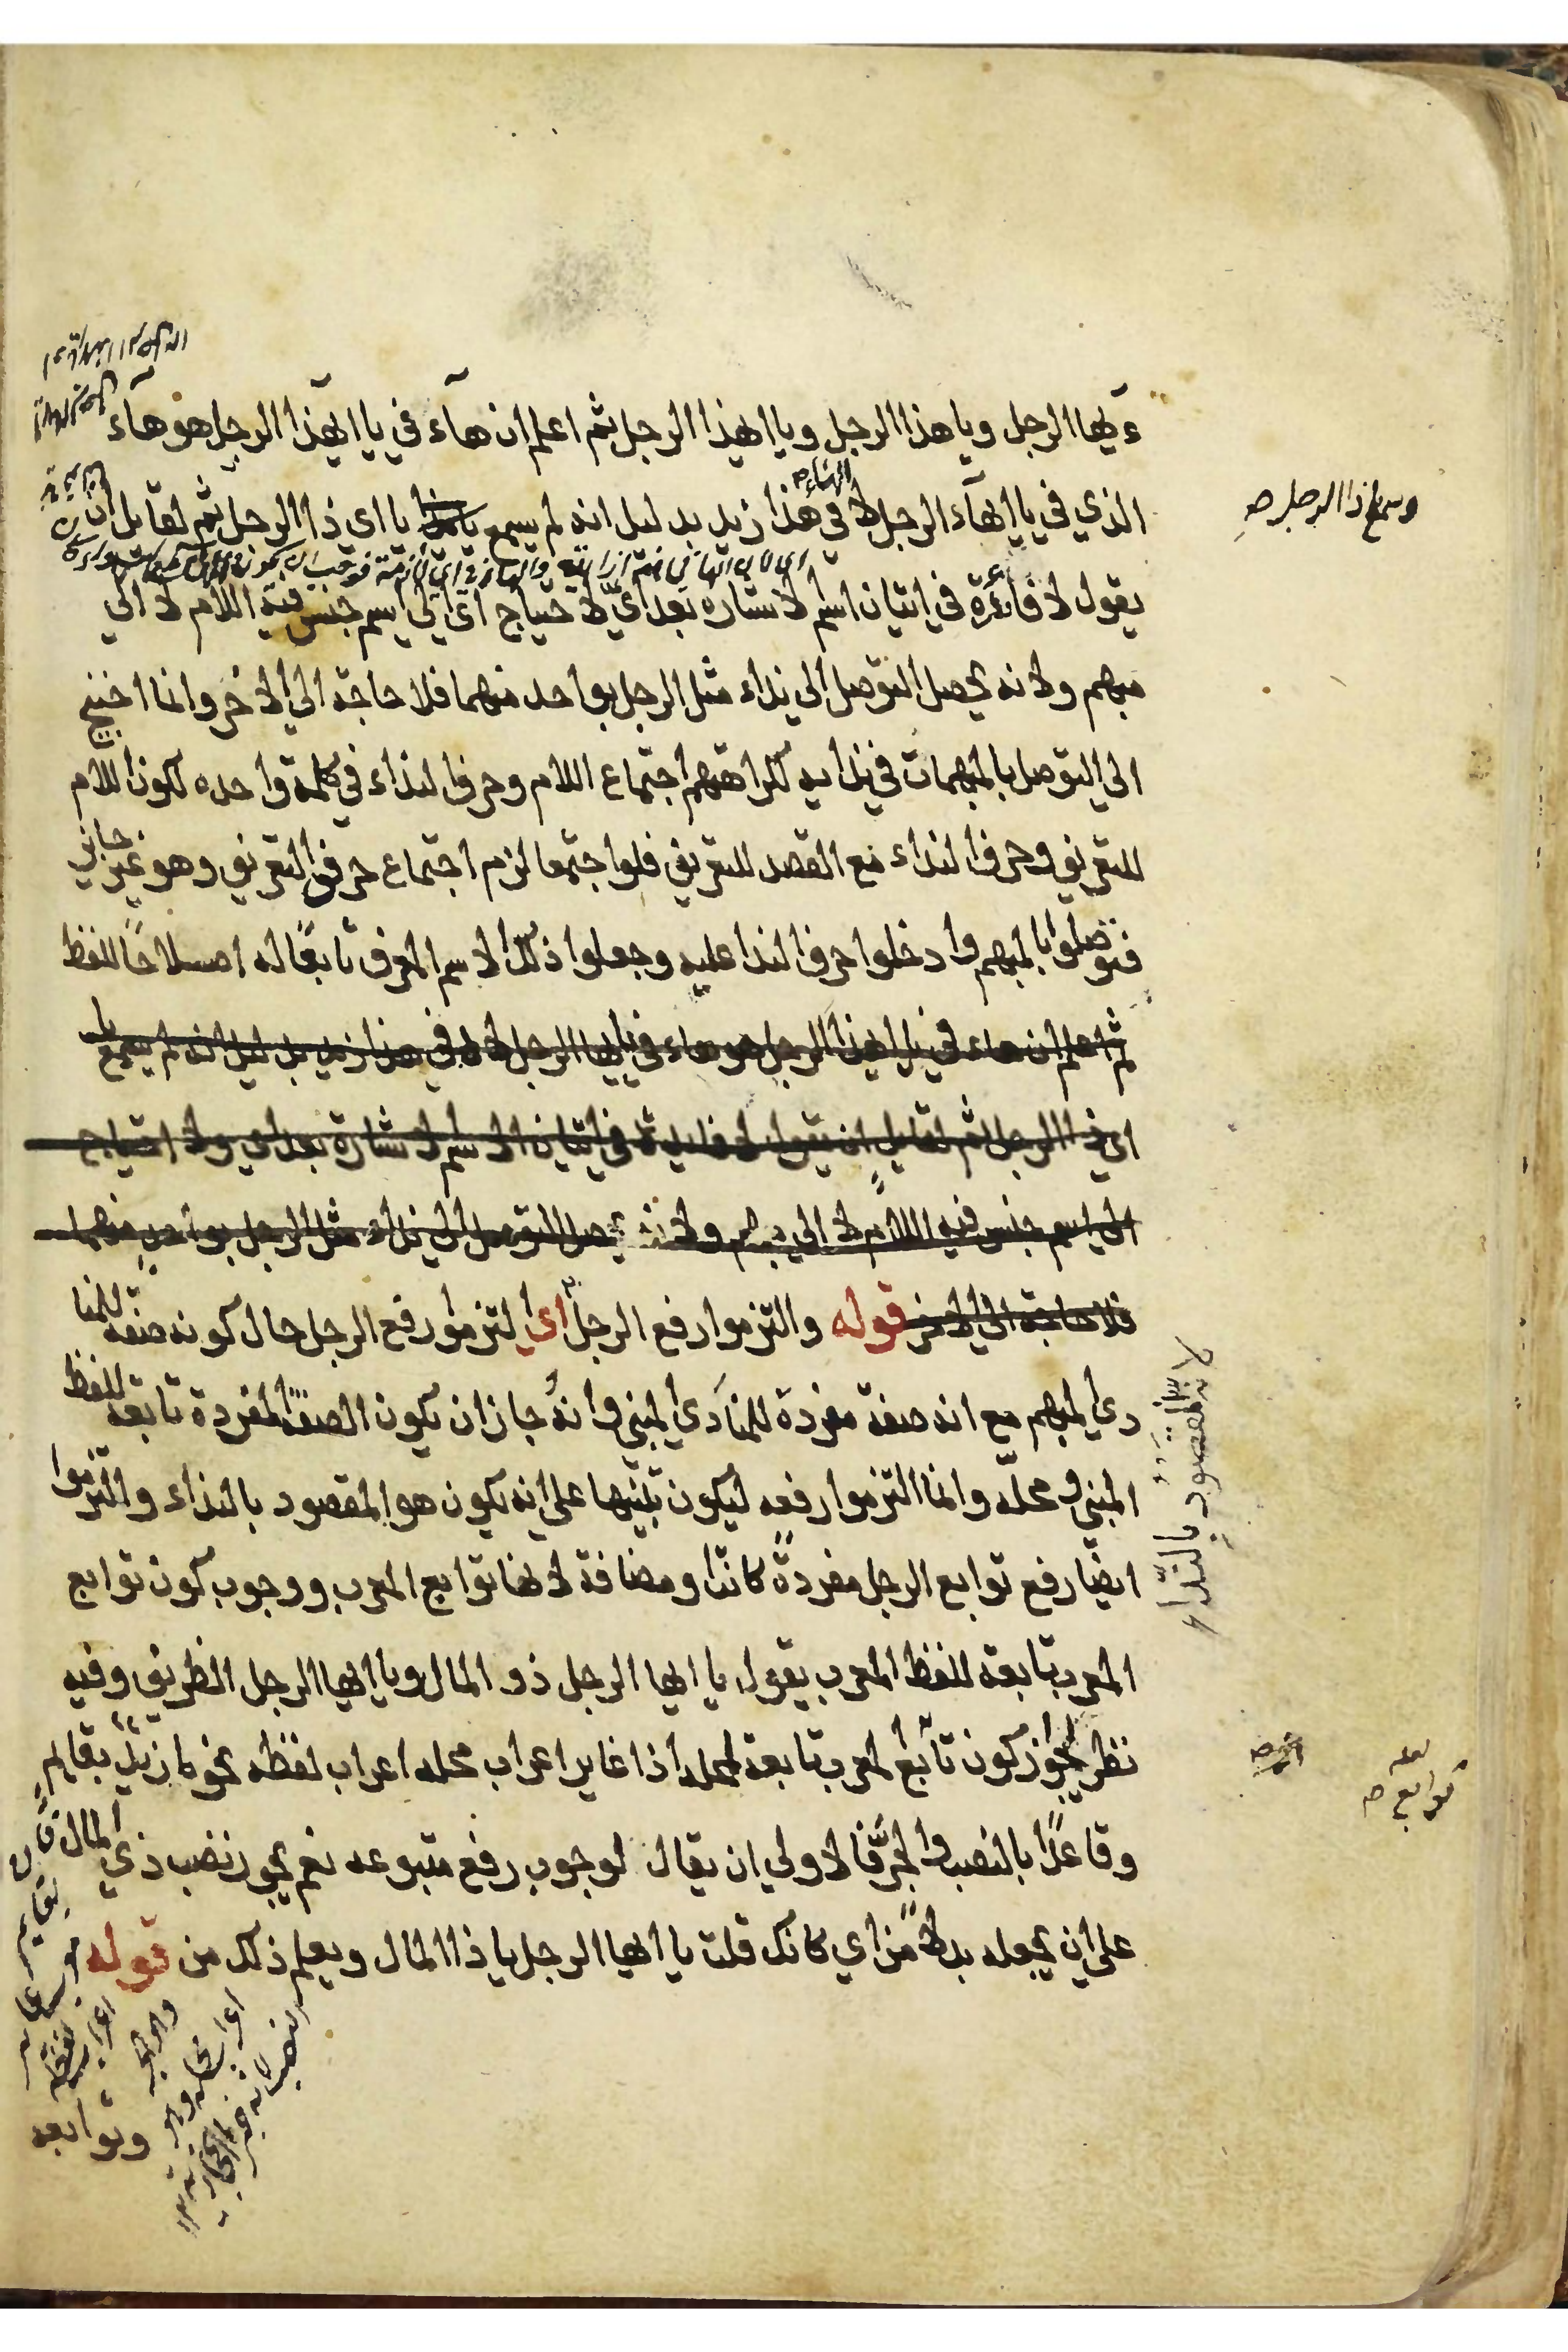 ءيها الرجل ويا هذا الرجل ويا ايهذا الرجل ثم اعلم ان هآء في يا ايهذا الرجل هو هآء
الذي في يا ايهآء الرجل لا في هذا زيد بدليل انه لم يسمع يا اي ذا الرجل ثم لقايل ان
يقول لا فائدة في اتيان اسم لاشاره بعد اي لاحتياج اي الي اسم جنس فيه اللام لا الي
مبهم ولانه يحصل التوصل الي نداء مثل الرجل بواحد منهما فلا حاجة الي الاخر وانما احتيج
الي التوصل بالمبهمات في ندايه لكراهتهم اجتماع اللام وحرف النداء في كلمة واحده لكون اللام
للتعريف وحرف النداء مع القصد للتعريف فلو اجتمعا لزم اجتماع حرفي التعريف وهو غير جايز
فتوصلوا بالمبهم وادخلوا حرف الندا عليه وجعلوا ذلك الاسم المعرف تابعًا له اصلاحًا للفظ
ثم اعلم ان هاء في يا ايهذا الرجل هو هاء في يا ايها الرجل لا في هذا زيد بدليل انه لم يسمع يا
اي ذا الرجل ثم لقايل ان يقول لا فايدة في اتيان الاسم لاشارة بعد اي ولا احتياج
الي اسم جنس فيه اللام لا الي مبهم ولانه يحصل التوصل الي نداء مثل الرجل بواحد منهما
فلا حاجة الي الاخر قوله والتزموا رفع الرجل اي التزموا رفع الرجل حال كونه صفة للمنا
دي المبهم مع انه صفة مفردة للمنادي المبني وانه جاز ان تكون الصفة المفردة تابعة للفظ
المبني ومحله وانما التزموا رفعه ليكون تنبيها علي انه يكون هو المقصود بالنداء والتزموا
ايضا رفع توابع الرجل مفردةً كانت او مضافة لانها توابع المعرب ووجوب كون توابع
المعرب تابعة للفظ المعرب يقول يا ايها الرجل ذو المال ويا ايها الرجل الظريف وفيه
نظر لجواز كون تابع المعرب تابعة لمحله اذا غاير اعراب محله اعراب لفظه نحو ما زيد بقايم
وقاعدًا بالنصب والجر فالاولي ان يقال لوجوب رفع متبوعه نعم يجوز نصب ذي المال
علي ان يجعله بدلا من اي كانك قلت يا ايها الرجل يا ذا المال ويعلم ذلك من قوله
وتوابعه
لانه المقصود بالنداء
توابع صح